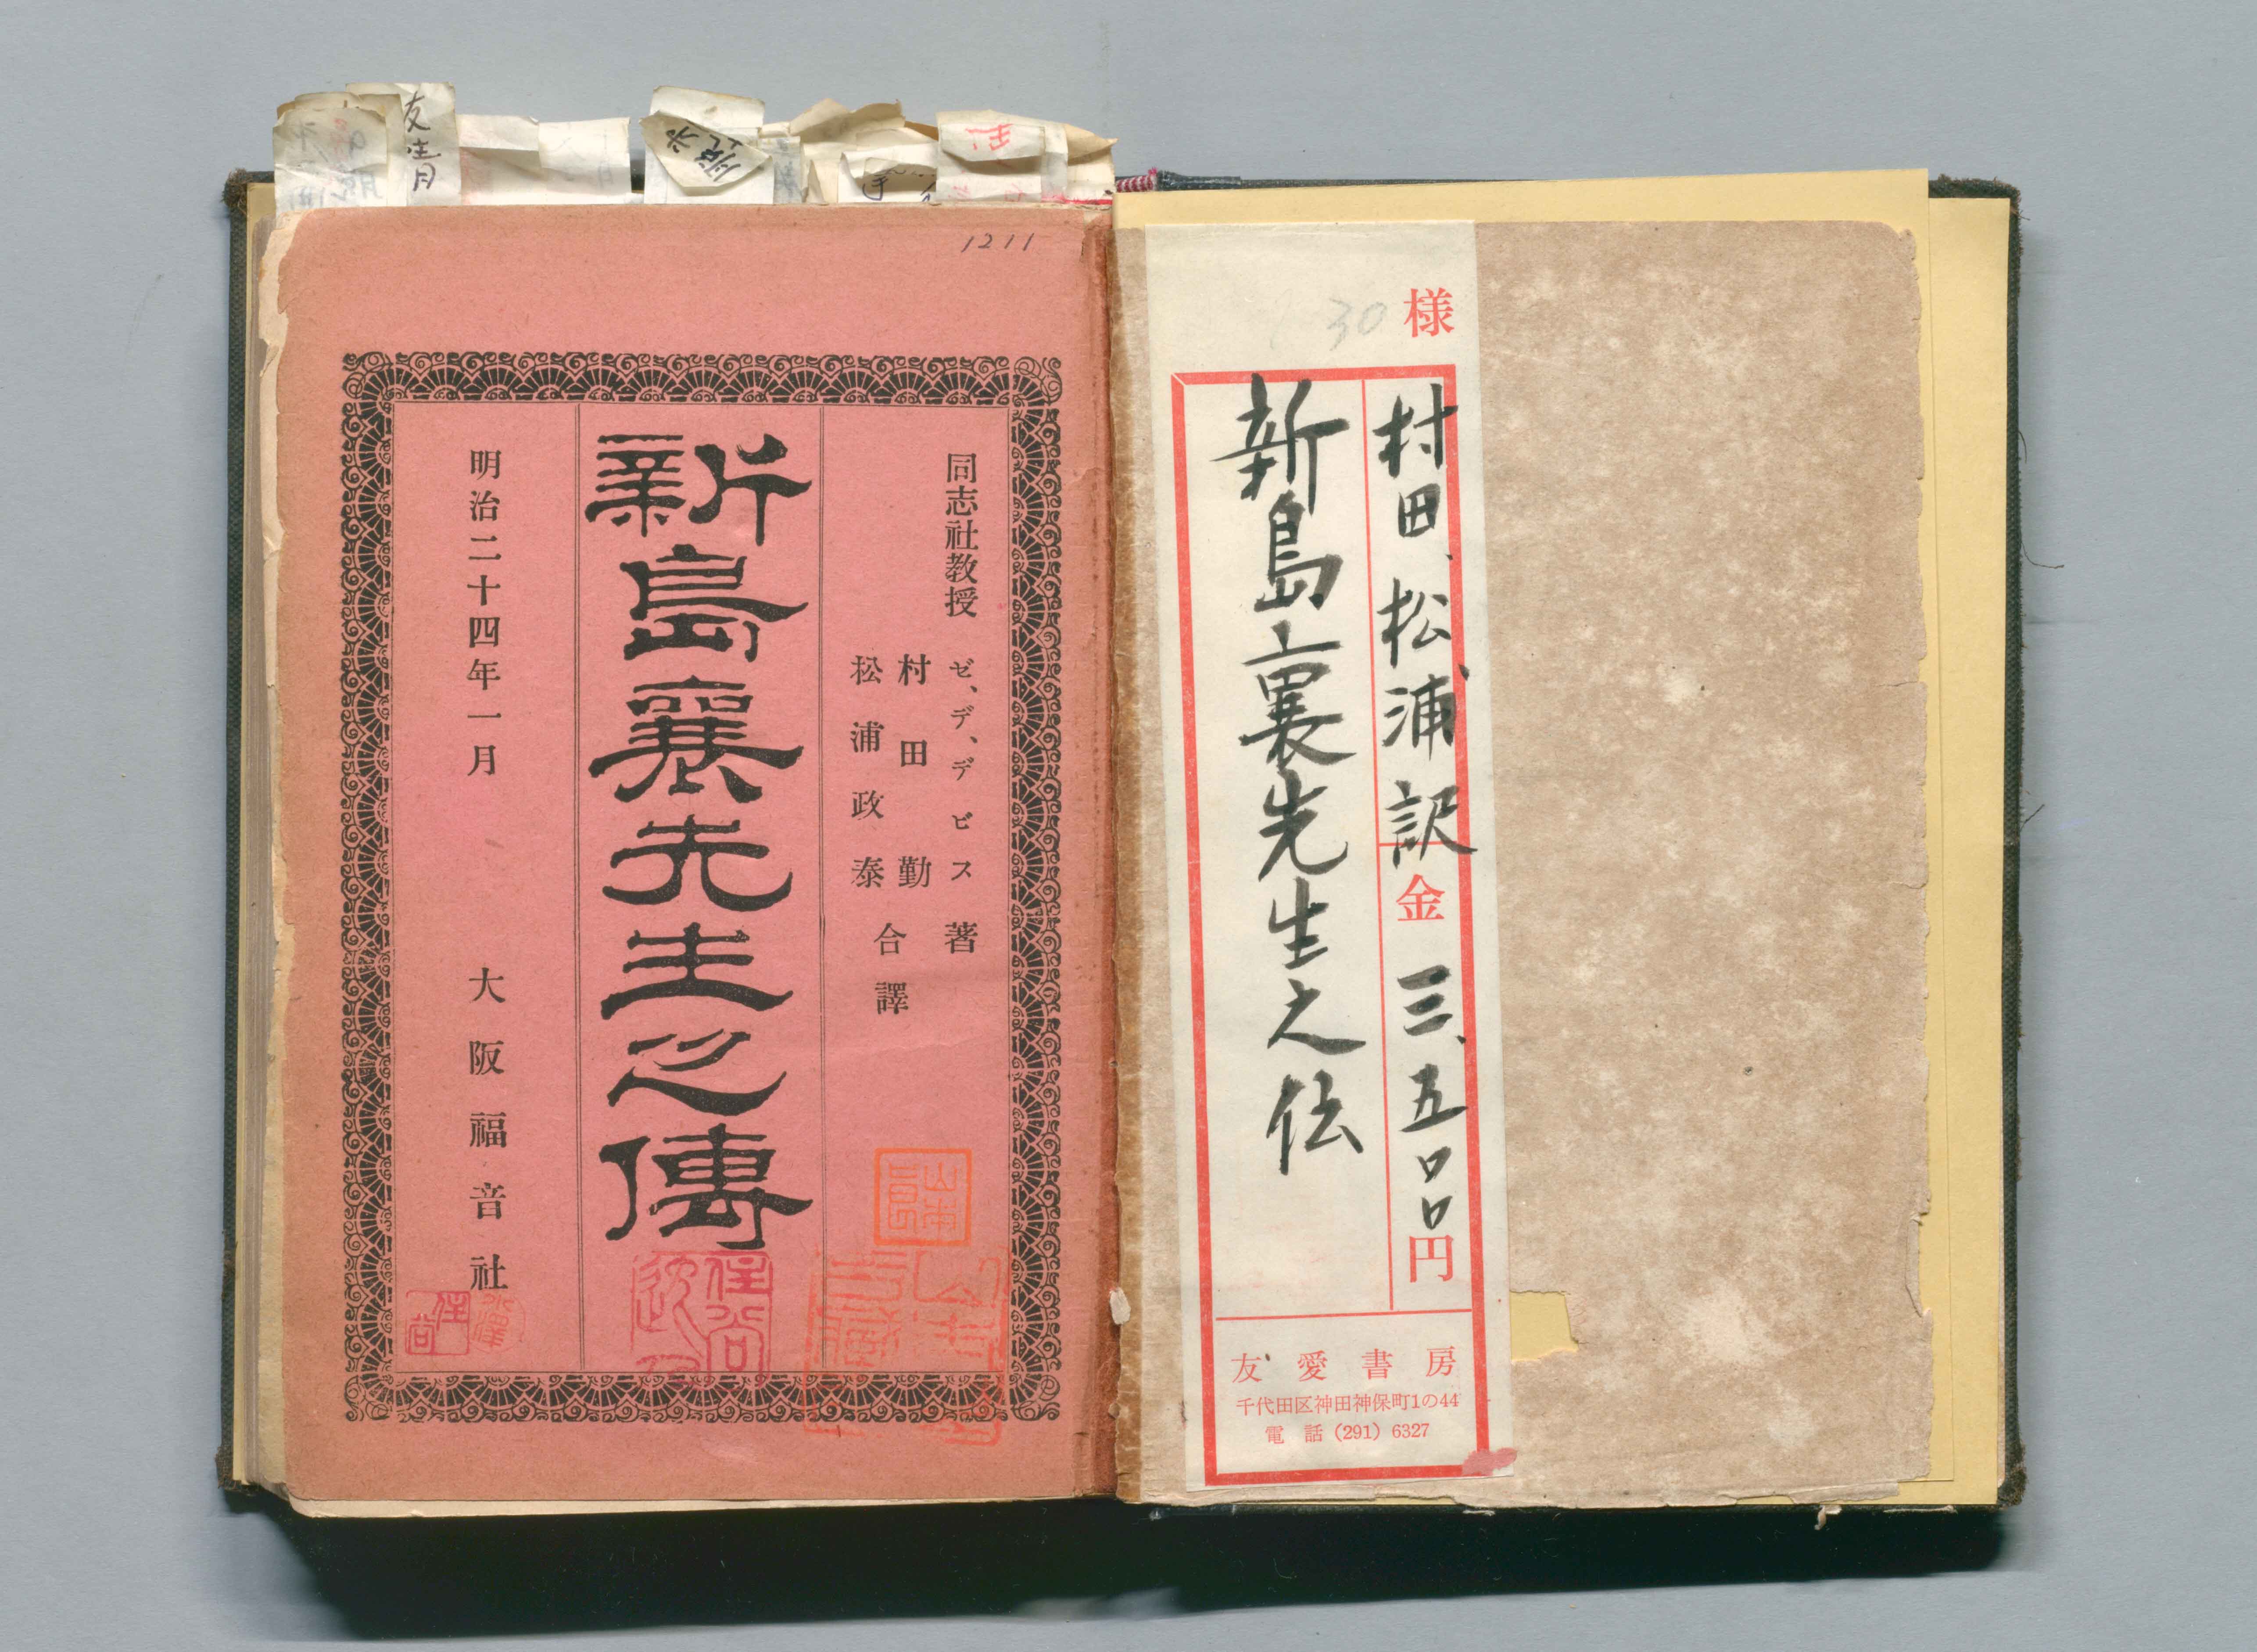 様
30
村田、松浦、訳
金 三、五〇〇円
新島襄先生之伝
友愛書房
千代田区神田神保町1の44
電話 (291) 6327
1211
同志社教授 ゼ、デ、デビス 著
村田勤
松浦政泰
合譯
新島襄先生之傳
明治二十四年一月 大阪福音社
友青